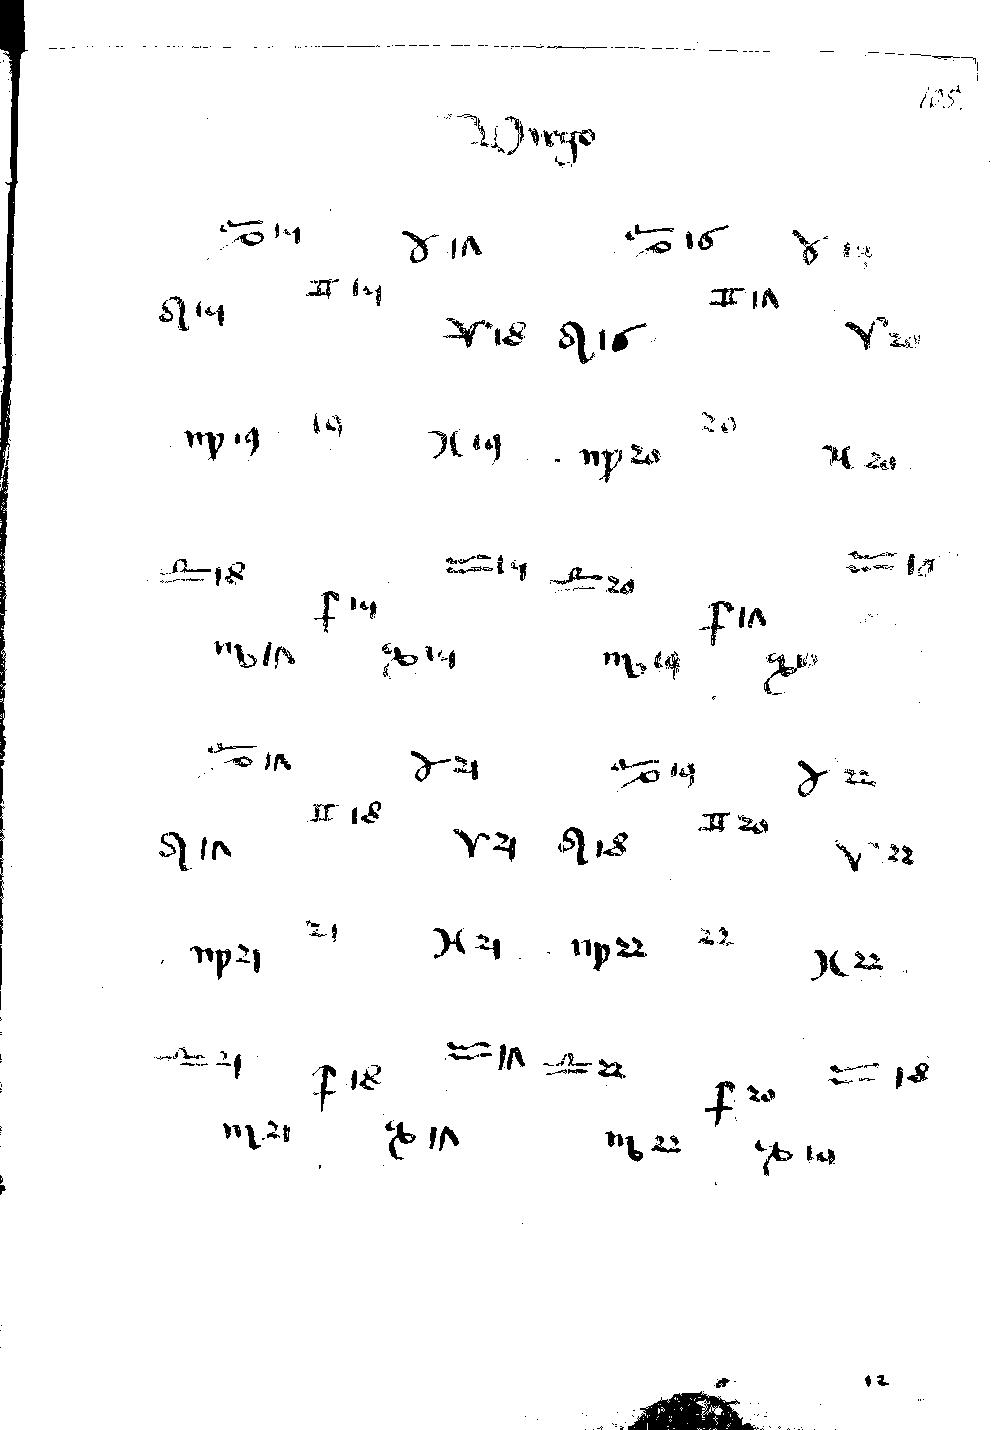 105
Virgo
♋15 ♉17 ♋16 ♉
♊15 ♊17
♌15 ♈18 ♌16 ♈20
19 20
♍19 ♓19 ♍20 ♓20
♎18 ♒15 ♎20 ♒
♐15 ♐17
♏17 ♑15 ♏19 ♑
♋17 ♉21 ♋19 ♉22
♊18 ♊20
♌17 ♈21 ♌18 ♈22
21 22
♍21 ♓21 ♍22 ♓22
♎21 ♒17 ♎22 ♒18
♐18 ♐20
♏21 ♑17 ♏22 ♑19
12